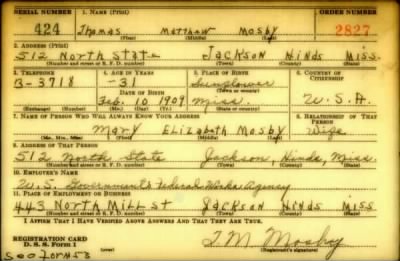 SERIAL NUMBER 1. NAME (Print) ORDER NUMBER
424 Thomas Matthew Mosby 2827
(First) (Middle) (Last)
2. ADDRESS (Print)
512 North State Jackson Hinds Miss.
(Number and street or R. F. D. number) (Town) (County) (State)
3. TELEPHONE 4. AGE IN YEARS 5. PLACE OF BIRTH 6. COUNTRY OF CITIZENSHIP
3-3718 31 Sunflower
DATE OF BIRTH (Town or county)
Feb. 10 1909 Miss. U.S.A.
(Exchange) (Number) (Mo.) (Day) (Yr.) (State or country)
7. NAME OF PERSON WHO WILL ALWAYS KNOW YOUR ADDRESS 8. RELATIONSHIP OF THAT PERSON
Mary Elizabeth Mosby Wife
(Mr., Mrs., Miss) (First) (Middle) (Last)
9. ADDRESS OF THAT PERSON
512 North State Jackson, Hinds, Miss.
(Number and street or R. F. D. number) (Town) (County) (State)
10. EMPLOYER'S NAME
U.S. Government Federal Works Agency
11. PLACE OF EMPLOYMENT OR BUSINESS
443 North Mill St Jackson Hinds Miss
(Number and street or R. F. D. number) (Town) (County) (State)
I AFFIRM THAT I HAVE VERIFIED ABOVE ANSWERS AND THAT THEY ARE TRUE.
REGISTRATION CARD
D. S. S. Form 1 T. M. Mosby
(Registrant's signature)